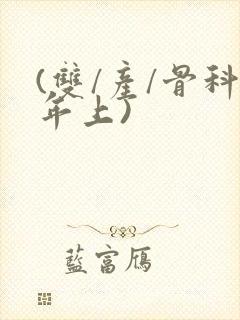 (雙/產/骨科
年上)
藍富鴈